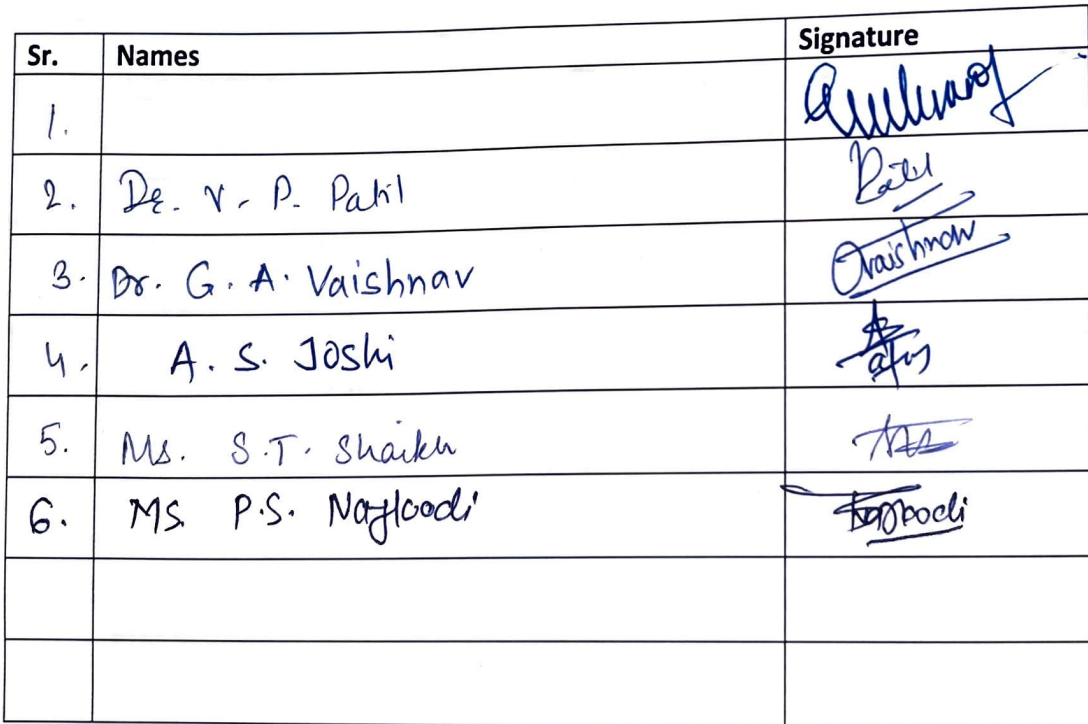 Sr. Names Signature
1.
2. Dr. V. P. Patil Patil
3. Dr. G. A. Vaishnav Vaishnav
4. A. S. Joshi
5. Ms. S.T. Shaikh
6. Ms. P.S.